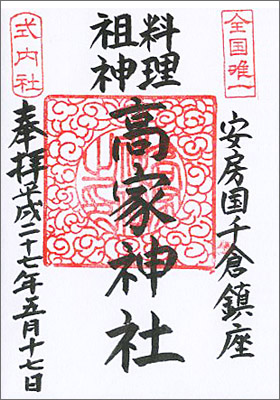 全国唯一
安房国千倉鎮座
料理
祖神
高家神社
式内社
奉拝平成二十七年五月十七日